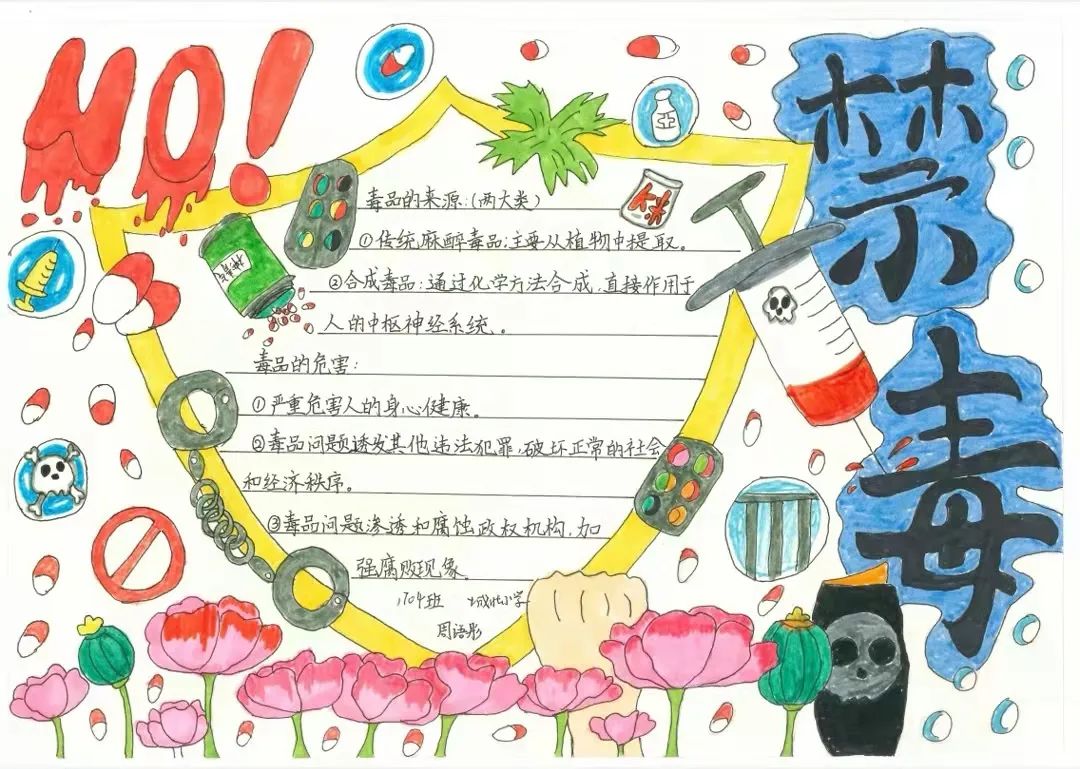 NO!
禁毒
毒品的来源:(两大类)
①传统麻醉毒品:主要从植物中提取。
②合成毒品:通过化学方法合成,直接作用于
人的中枢神经系统。
毒品的危害:
①严重危害人的身心健康。
②毒品问题诱发其他违法犯罪,破坏正常的社会
和经济秩序。
③毒品问题渗透和腐蚀政权机构,加
强腐败现象。
1704班
周语彤